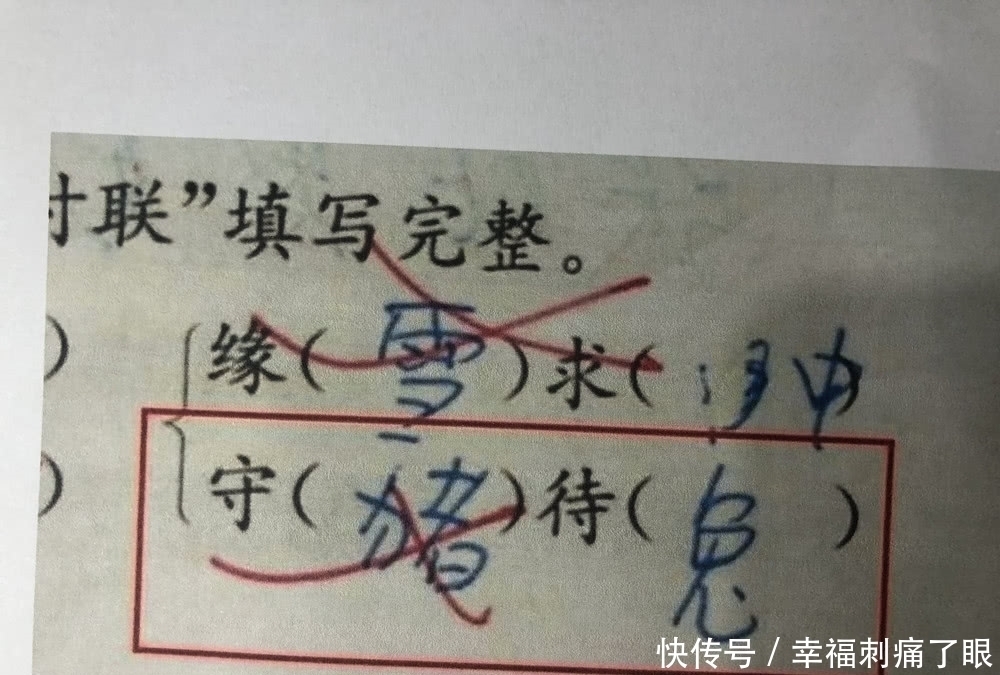 对联”填写完整。
) 缘(雪)求( )
) 守(猪)待(兔)
快传号 / 幸福刺痛了眼